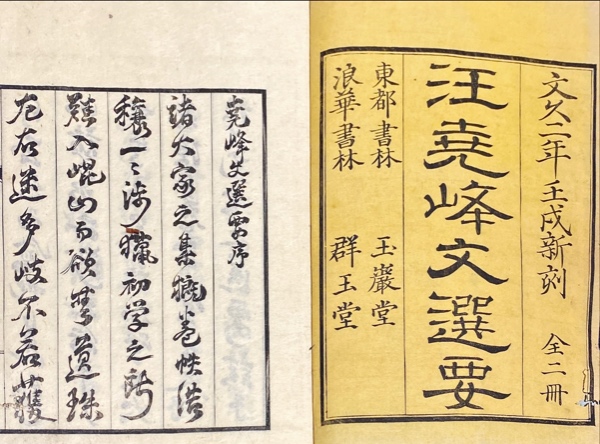 文久二年壬戌新刻 全二冊
汪堯峰文選要
東都書林 玉巖堂
浪華書林 群玉堂
堯峰文選要序
諸大家之集概卷帙浩
穰一〻涉獵初学之所
難入崐山而欲無遺珠
左右迷多岐不若獲